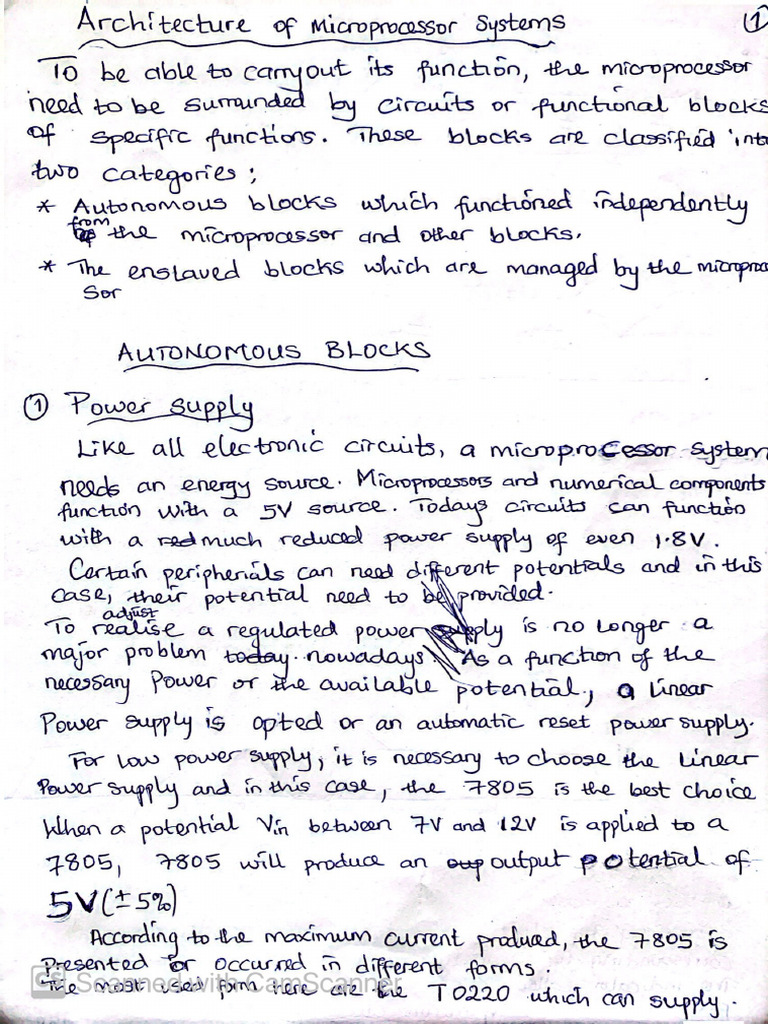 Architecture of Microprocessor Systems 1
To be able to carryout its function, the microprocessor
need to be surrounded by circuits or functional blocks
of specific functions. These blocks are classified into
two categories;
* Autonomous blocks which functioned independently
from the microprocessor and other blocks.
* The enslaved blocks which are managed by the microproce
sor
AUTONOMOUS BLOCKS
1 Power supply
Like all electronic circuits, a microprocessor system
needs an energy source. Microprocessors and numerical components
function with a 5V source. Todays circuits can function
with a much reduced power supply of even 1.8V.
Certain peripherials can need different potentials and in this
case, their potential need to be provided.
adjust
To realise a regulated power supply is no longer a
major problem today nowadays. As a function of the
necessary Power or the available potential, a linear
Power supply is opted or an automatic reset power supply.
For low power supply, it is necessary to choose the linear
Power supply and in this case, the 7805 is the best choice
When a potential Vin between 7V and 12V is applied to a
7805, 7805 will produce an output potential of
5V (±5%)
According to the maximum current produced, the 7805 is
Presented or occurred in different forms.
The most used form here are the T0220 which can supply.
CS Scanned with CamScanner